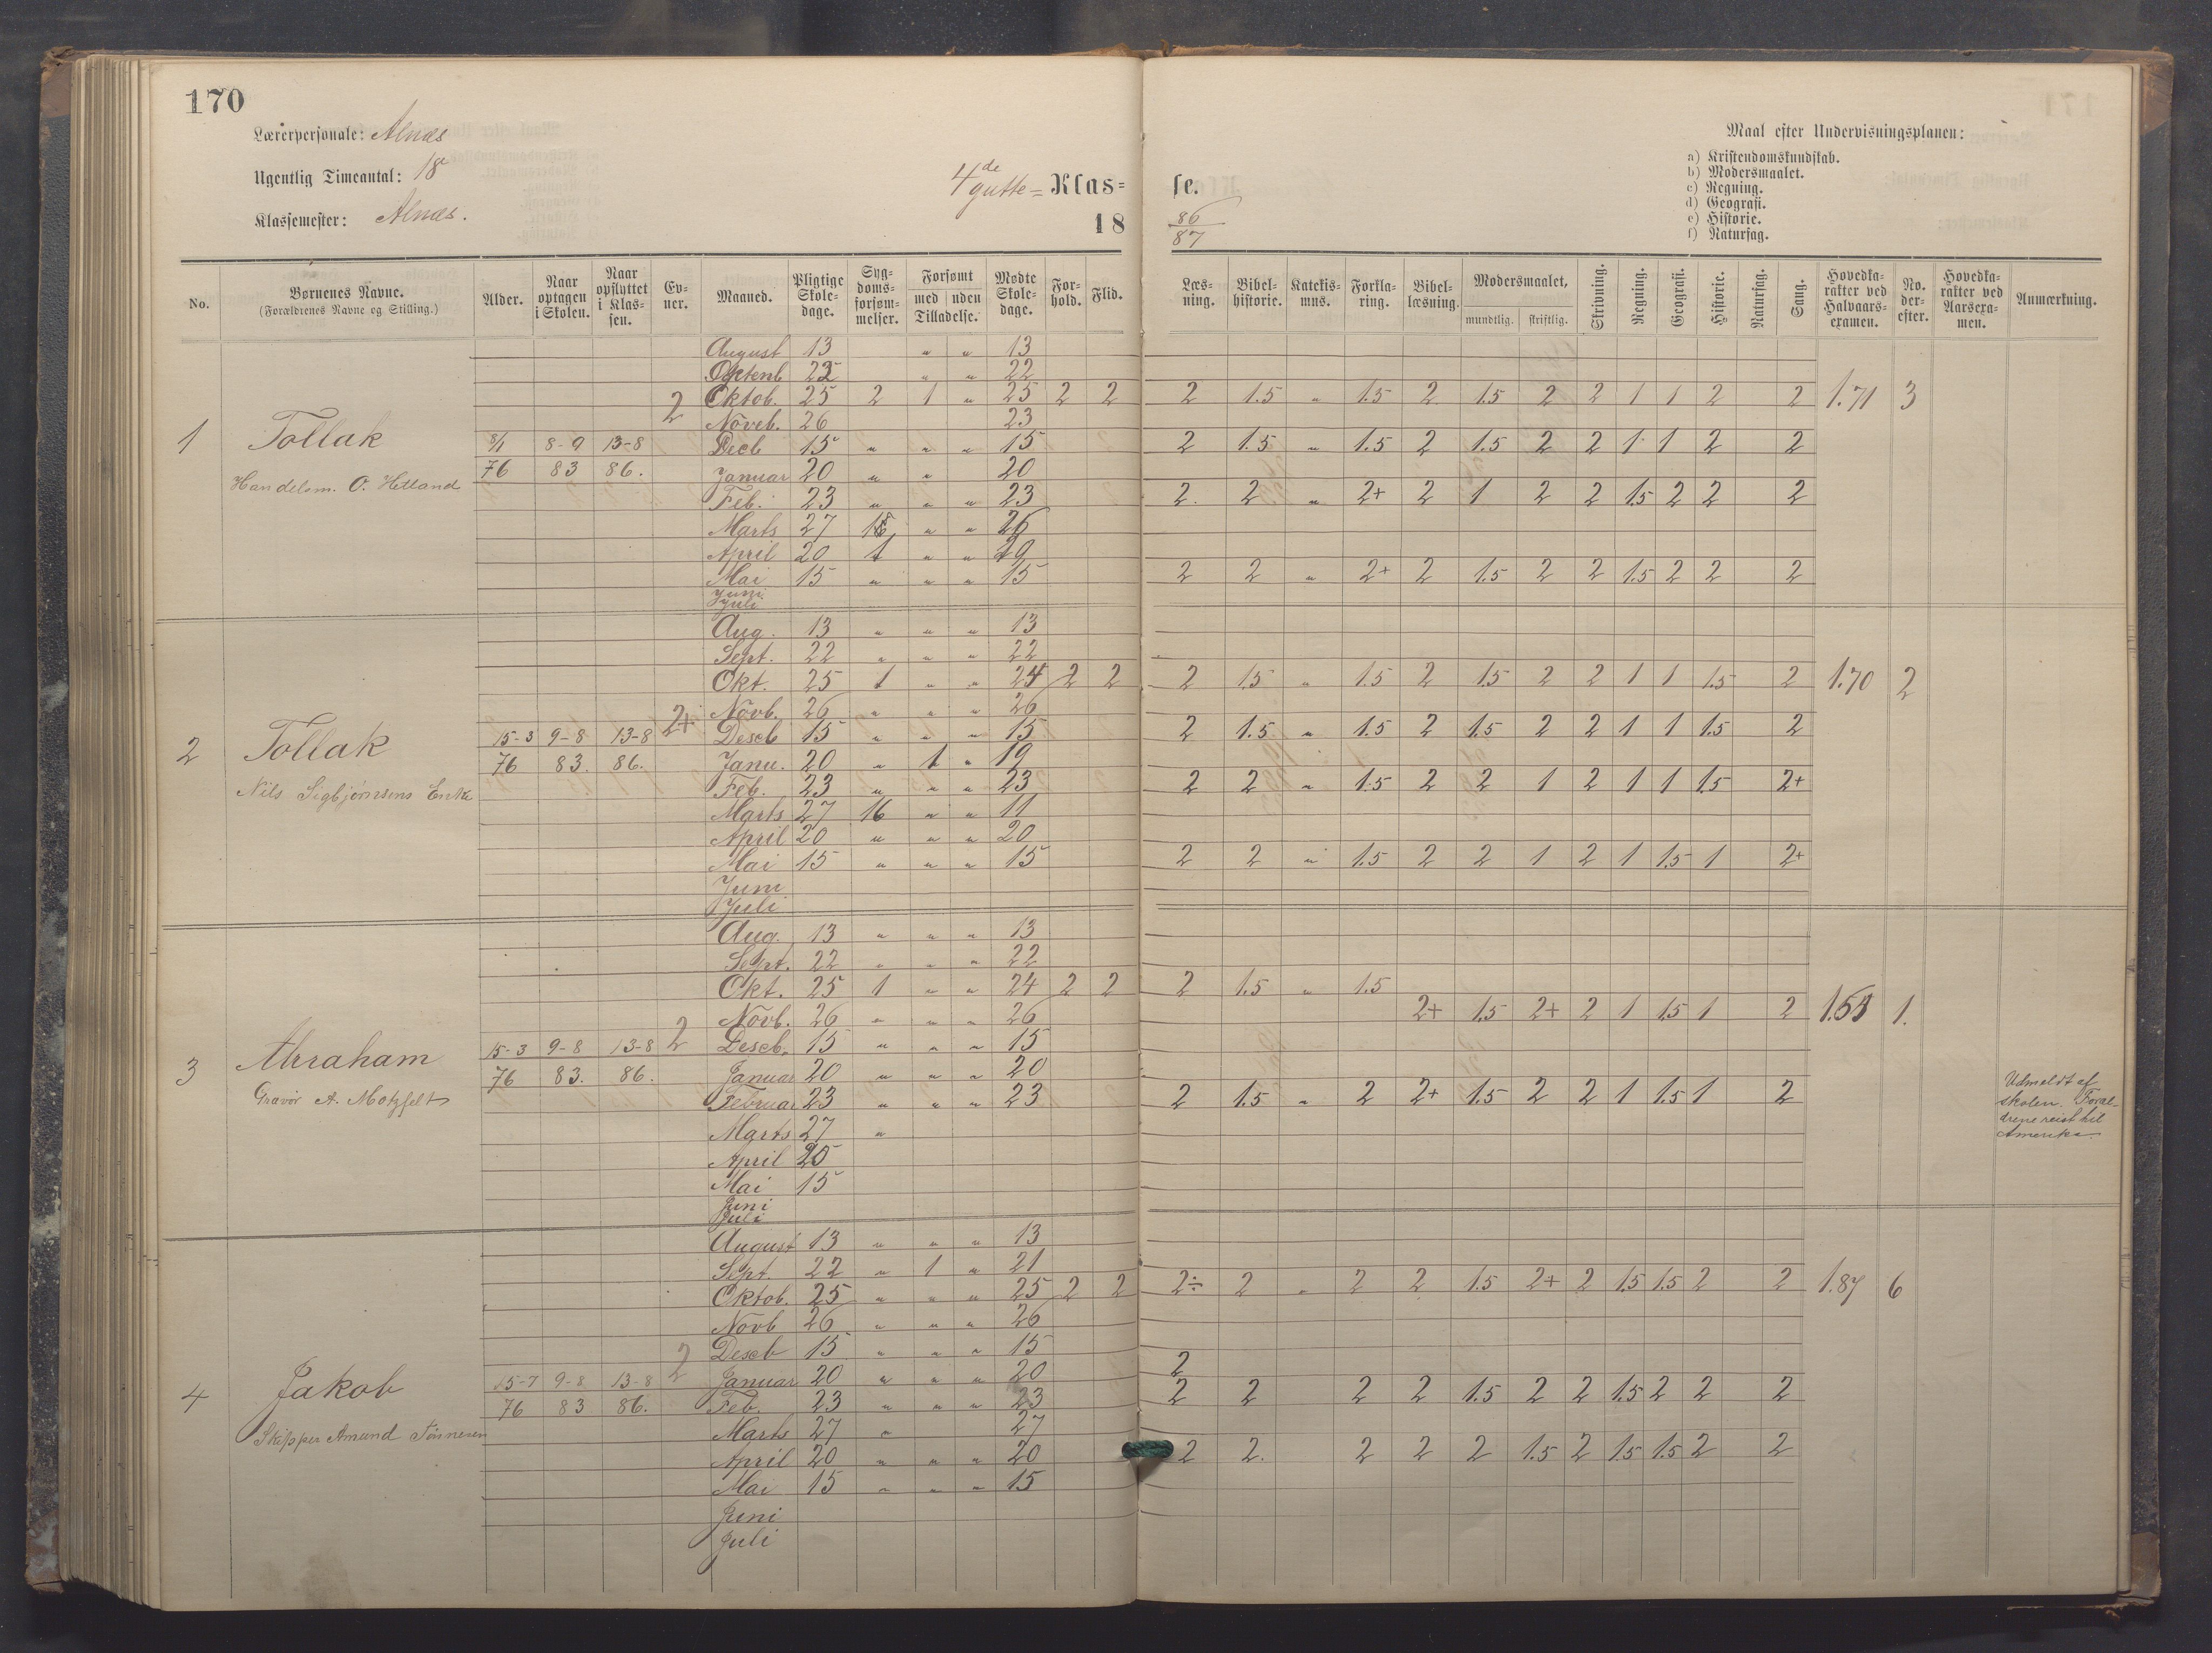 170
Lærerpersonale: Alnæs
Ugentlig Timeantal: 18
Klassemester: Alnæs.
4de gutte= Klas= se.
18 86/87
Maal efter Undervisningsplanen:
a) Kristendomskundskab.
b) Modersmaalet.
c) Regning.
d) Geografi.
e) Historie.
f) Naturfag.
No. Børnenes Navne. (Forældrenes Navne og Stilling.) Alder. Naar optagen i Skolen. Naar opflyttet i Klassen. Evner. Maaned. Pligtige Skoledage. Sygdomsforsømmelser. Forsømt med uden Tilladelse. Mødte Skoledage. Forhold. Flid. Læsning. Bibelhistorie. Katekismus. Forklaring. Bibellæsning. Modersmaalet, mundtlig. skriftlig. Skrivning. Regning. Geografi. Historie. Naturfag. Sang. Hovedkarakter ved Halvaarsexamen. No. derefter. Hovedkarakter ved Aarsexamen. Anmærkning.
August 13 " " 13
Septenb 22 " " 22
2 Oktob. 25 2 1 " 25 2 2 2 1.5 " 1.5 2 1.5 2 2 1 1 2 2 1.71 3
Noveb. 26 23
1 Tollak 8/1 8-9 13-8 Decb 15 " " " 15 2 1.5 " 1.5 2 1.5 2 2 1 1 2 2
Handelsm. O. Hetland 76 83 86. Januar 20 " " 20
Feb. 23 " " " 23 2. 2 " 2+ 2 1 2 2 1.5 2 2 2
Marts 27 " " 26
April 20 1 " " 19
Mai 15 " " " 15 2 2 " 2+ 2 1.5 2 2 1.5 2 2 2
Juni
Juli
Aug. 13 " " " 13
Sept. 22 " " " 22
Okt. 25 1 " " 24 2 2 2 1.5 " 1.5 2 1.5 2 2 1 1 1.5 2 1.70 2
2+ Novb. 26 " " " 26
2 Tollak 15-3 9-8 13-8 Descb 15 " " " 15 2 1.5 " 1.5 2 1.5 2 2 1 1 1.5 2
76 83. 86. Janu. 20 " 1 " 19
Nils Sigbjørnsens Enke Feb. 23 " " " 23 2 2 " 1.5 2 2 1 2 1 1 1.5 2+
Marts 27 16 " " 11
April 20 " " " 20
Mai 15 " " " 15 2 2 " 1.5 2 2 1 2 1 1.5 1 2+
Juni
Juli
Aug. 13 " " " 13
Sept. 22 " " " 22
Okt. 25 1 " " 24 2 2 2 1.5 " 1.5
Novb. 26 " " " 26 2+ 1.5 2+ 2 1 1.5 1 2 1.
3 Abraham 15-3 9-8 13-8 2 Descb. 15 " " " 15
76 83. 86. Januar 20 " " " 20
Gravør A. Motzfelt Februar 23 " " " 23 2 1.5 " 2 2+ 1.5 2 2 1 1.5 1 2
Udmeldt af
skolen. Foræl-
drene reist til
Amerika.
Marts 27 "
April 20
Mai 15
Juni
Juli
August 13 " " " 13
Sept. 22 " 1 " 21
Oktob. 25 " " " 25 2 2 2÷ 2 " 2 2 1.5 2+ 2 1.5 1.5 2 2 1.87 6
Novb 26 " " " 26
2 Descb 15 " " " 15
2
4 Jakob 15-7 9-8 13-8 Januar 20 " " " 20 2 2 2 2 1.5 2 2 1.5 2 2 2
76 83 86. Feb. 23 " " " 23
Skipper Amund Tønnesen Marts 27 " 27
April 20 " " " 20 2 2. 2 2 2 1.5 2 1.5 1.5 2 2
Mai 15 " " " 15
Juni
Juli